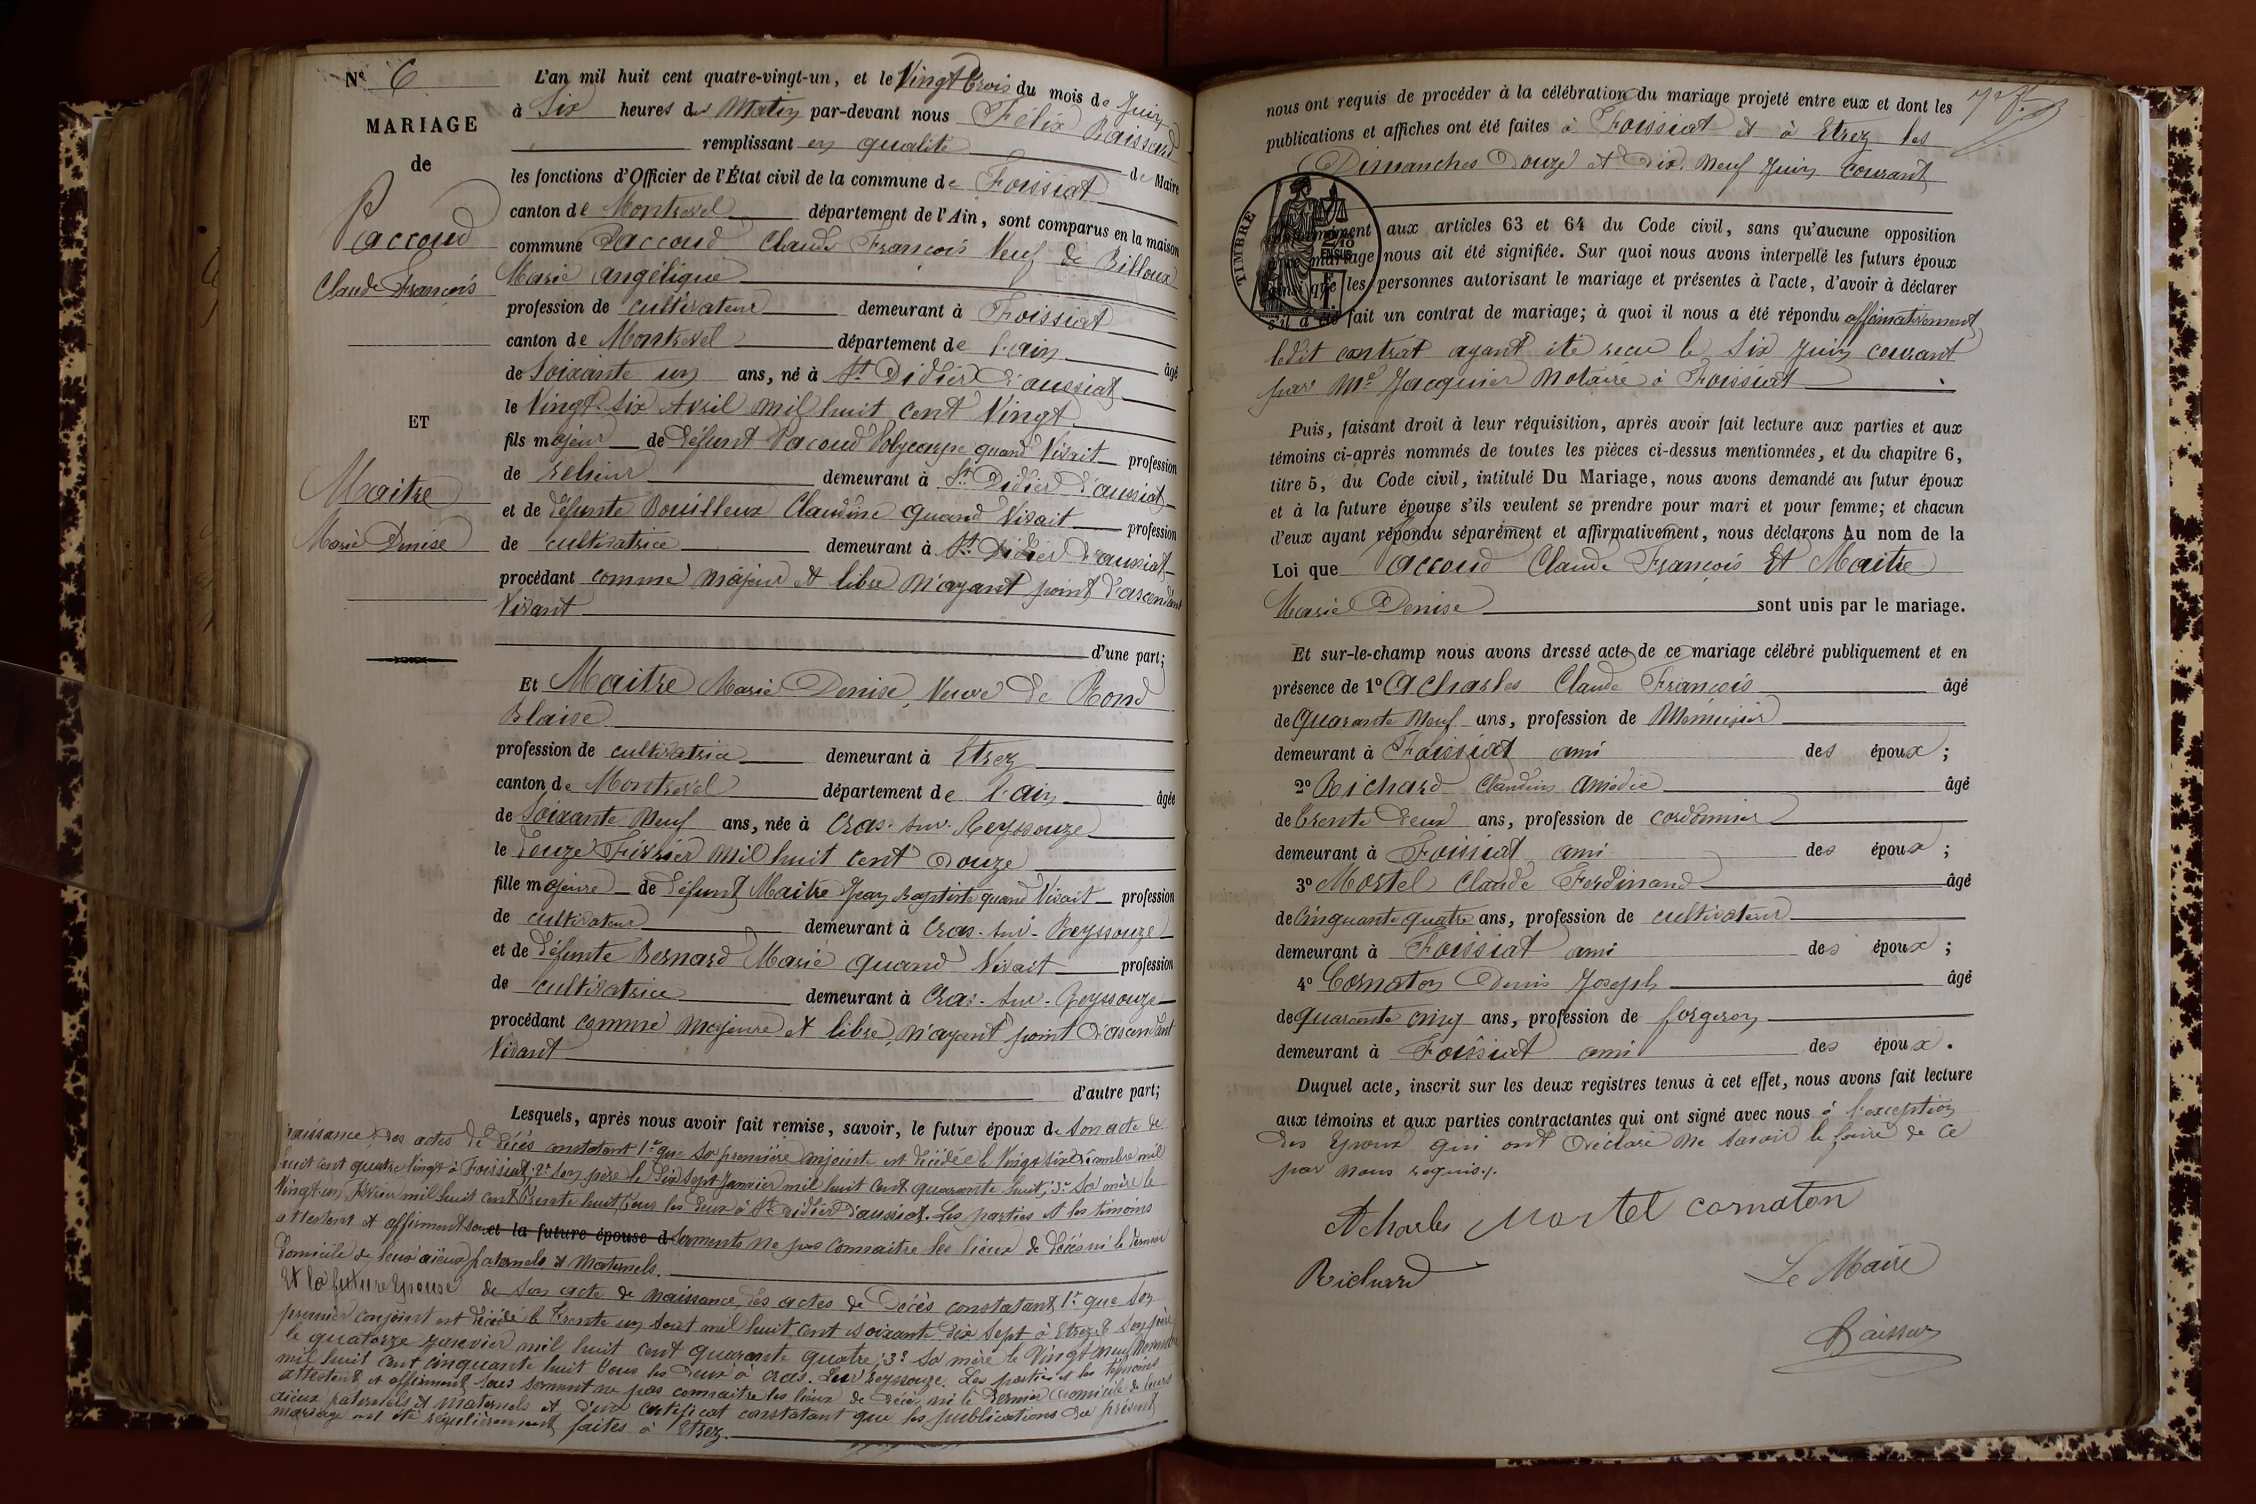 Nº 6
MARIAGE
de
Paccoud
Claude François
ET
Maitre
Marie Denise
L'an mil huit cent quatre-vingt-un, et le Vingt trois du mois de Juin
à Six heures du Matin par-devant nous Félix
remplissant en qualité de Maire
les fonctions d'Officier de l'État civil de la commune de Foissiat
canton de Montrevel département de l'Ain, sont comparus en la maison
commune Paccoud Claude François Veuf de Billoux
Marie angélique
profession de cultivateur demeurant à Foissiat
canton de Montrevel département de l'ain âgé
de Soixante un ans, né à St Didier d'aussiat
le Vingt-Six Avril mil huit cent Vingt
fils majeur de défunt Pacoud Polycarpe quand Vivait profession
de demeurant à St Didier d'aussiat
et de défunte Bouilleux Claudine quand Vivait profession
de cultivatrice demeurant à St Didier d'aussiat
procédant comme majeur et libre n'ayant point d'ascendant
Vivant
d'une part;
Et Maitre Marie Denise, Veuve de Rond
Blaise
profession de cultivatrice demeurant à Etrez
canton de Montrevel département de l'ain âgée
de Soixante Neuf ans, née à Cras-sur-Reyssouze
le Douze Février mil huit cent Douze
fille majeure de défunt Maitre Jean Baptiste quand Vivait profession
de cultivateur demeurant à Cras-sur-Reyssouze
et de défunte Bernard Marie quand Vivait profession
de cultivatrice demeurant à Cras-sur-Reyssouze
procédant comme majeure et libre, n'ayant point d'ascendant
Vivant
d'autre part;
Lesquels, après nous avoir fait remise, savoir, le futur époux de son acte de
naissance, des actes de décès constatant 1º que sa première conjointe est décédée le Vingt six Décembre mil
huit cent quatre Vingt à Foissiat; 2º son père le dix sept Janvier mil huit cent quarante huit; 3º sa mère le
Vingt-un Février mil huit cent trente huit, tous les deux à St didier d'aussiat. Les parties et les témoins
attestent et affirment sous et la future épouse d serments ne pas connaitre les lieux de décès ni le dernier
domicile de leurs aïeux paternels et Maternels.
Et la future Epouse de son acte de naissance, des actes de Décès constatant, 1º que son
premier conjoint est décédé le Trente un août mil huit cent soixante dix sept à Etrez; 2º son père
le quatorze janvier mil huit cent quarante quatre; 3º sa mère le Vingt neuf Novembre
mil huit cent cinquante huit tous les deux à Cras-sur-Reyssouze. Les parties et les témoins
attestent et affirment sous serment ne pas connaitre les lieux de décès ni le dernier domicile de leurs
aïeux paternels et maternels et d'un certificat constatant que les publications du présent
mariage ont été régulièrement faites à Etrez.
nous ont requis de procéder à la célébration du mariage projeté entre eux et dont les
publications et affiches ont été faites à Foissiat et à Etrez les
Dimanches Douze et Dix Neuf Juin courant
TIMBRE
conformément aux articles 63 et 64 du Code civil, sans qu'aucune opposition
au dit mariage nous ait été signifiée. Sur quoi nous avons interpellé les futurs époux
ainsi que les personnes autorisant le mariage et présentes à l'acte, d'avoir à déclarer
s'il a été fait un contrat de mariage; à quoi il nous a été répondu affirmativement
ledit contrat ayant été recu le Six Juin courant
par Me Jacquier Notaire à Foissiat
Puis, faisant droit à leur réquisition, après avoir fait lecture aux parties et aux
témoins ci-après nommés de toutes les pièces ci-dessus mentionnées, et du chapitre 6,
titre 5, du Code civil, intitulé Du Mariage, nous avons demandé au futur époux
et à la future épouse s'ils veulent se prendre pour mari et pour femme; et chacun
d'eux ayant répondu séparément et affirmativement, nous déclarons Au nom de la
Loi que Paccoud Claude François Et Maitre
Marie Denise sont unis par le mariage.
Et sur-le-champ nous avons dressé acte de ce mariage célébré publiquement et en
présence de 1º Acharles Claude François âgé
de quarante Neuf ans, profession de Menuisier
demeurant à Foissiat ami des époux;
2º Richard Claudius Amédée âgé
de trente deux ans, profession de cordonnier
demeurant à Foissiat ami des époux;
3º Mortel Claude Ferdinand âgé
de cinquante quatre ans, profession de cultivateur
demeurant à Foissiat ami des époux;
4º Cornaton Denis Joseph âgé
de quarante cinq ans, profession de forgeron
demeurant à Foissiat ami des époux.
Duquel acte, inscrit sur les deux registres tenus à cet effet, nous avons fait lecture
aux témoins et aux parties contractantes qui ont signé avec nous à l'exception
des Epoux qui ont déclaré ne savoir le faire de ce
par nous requis.
Acharles Mortel Cornaton
Richard
Le Maire